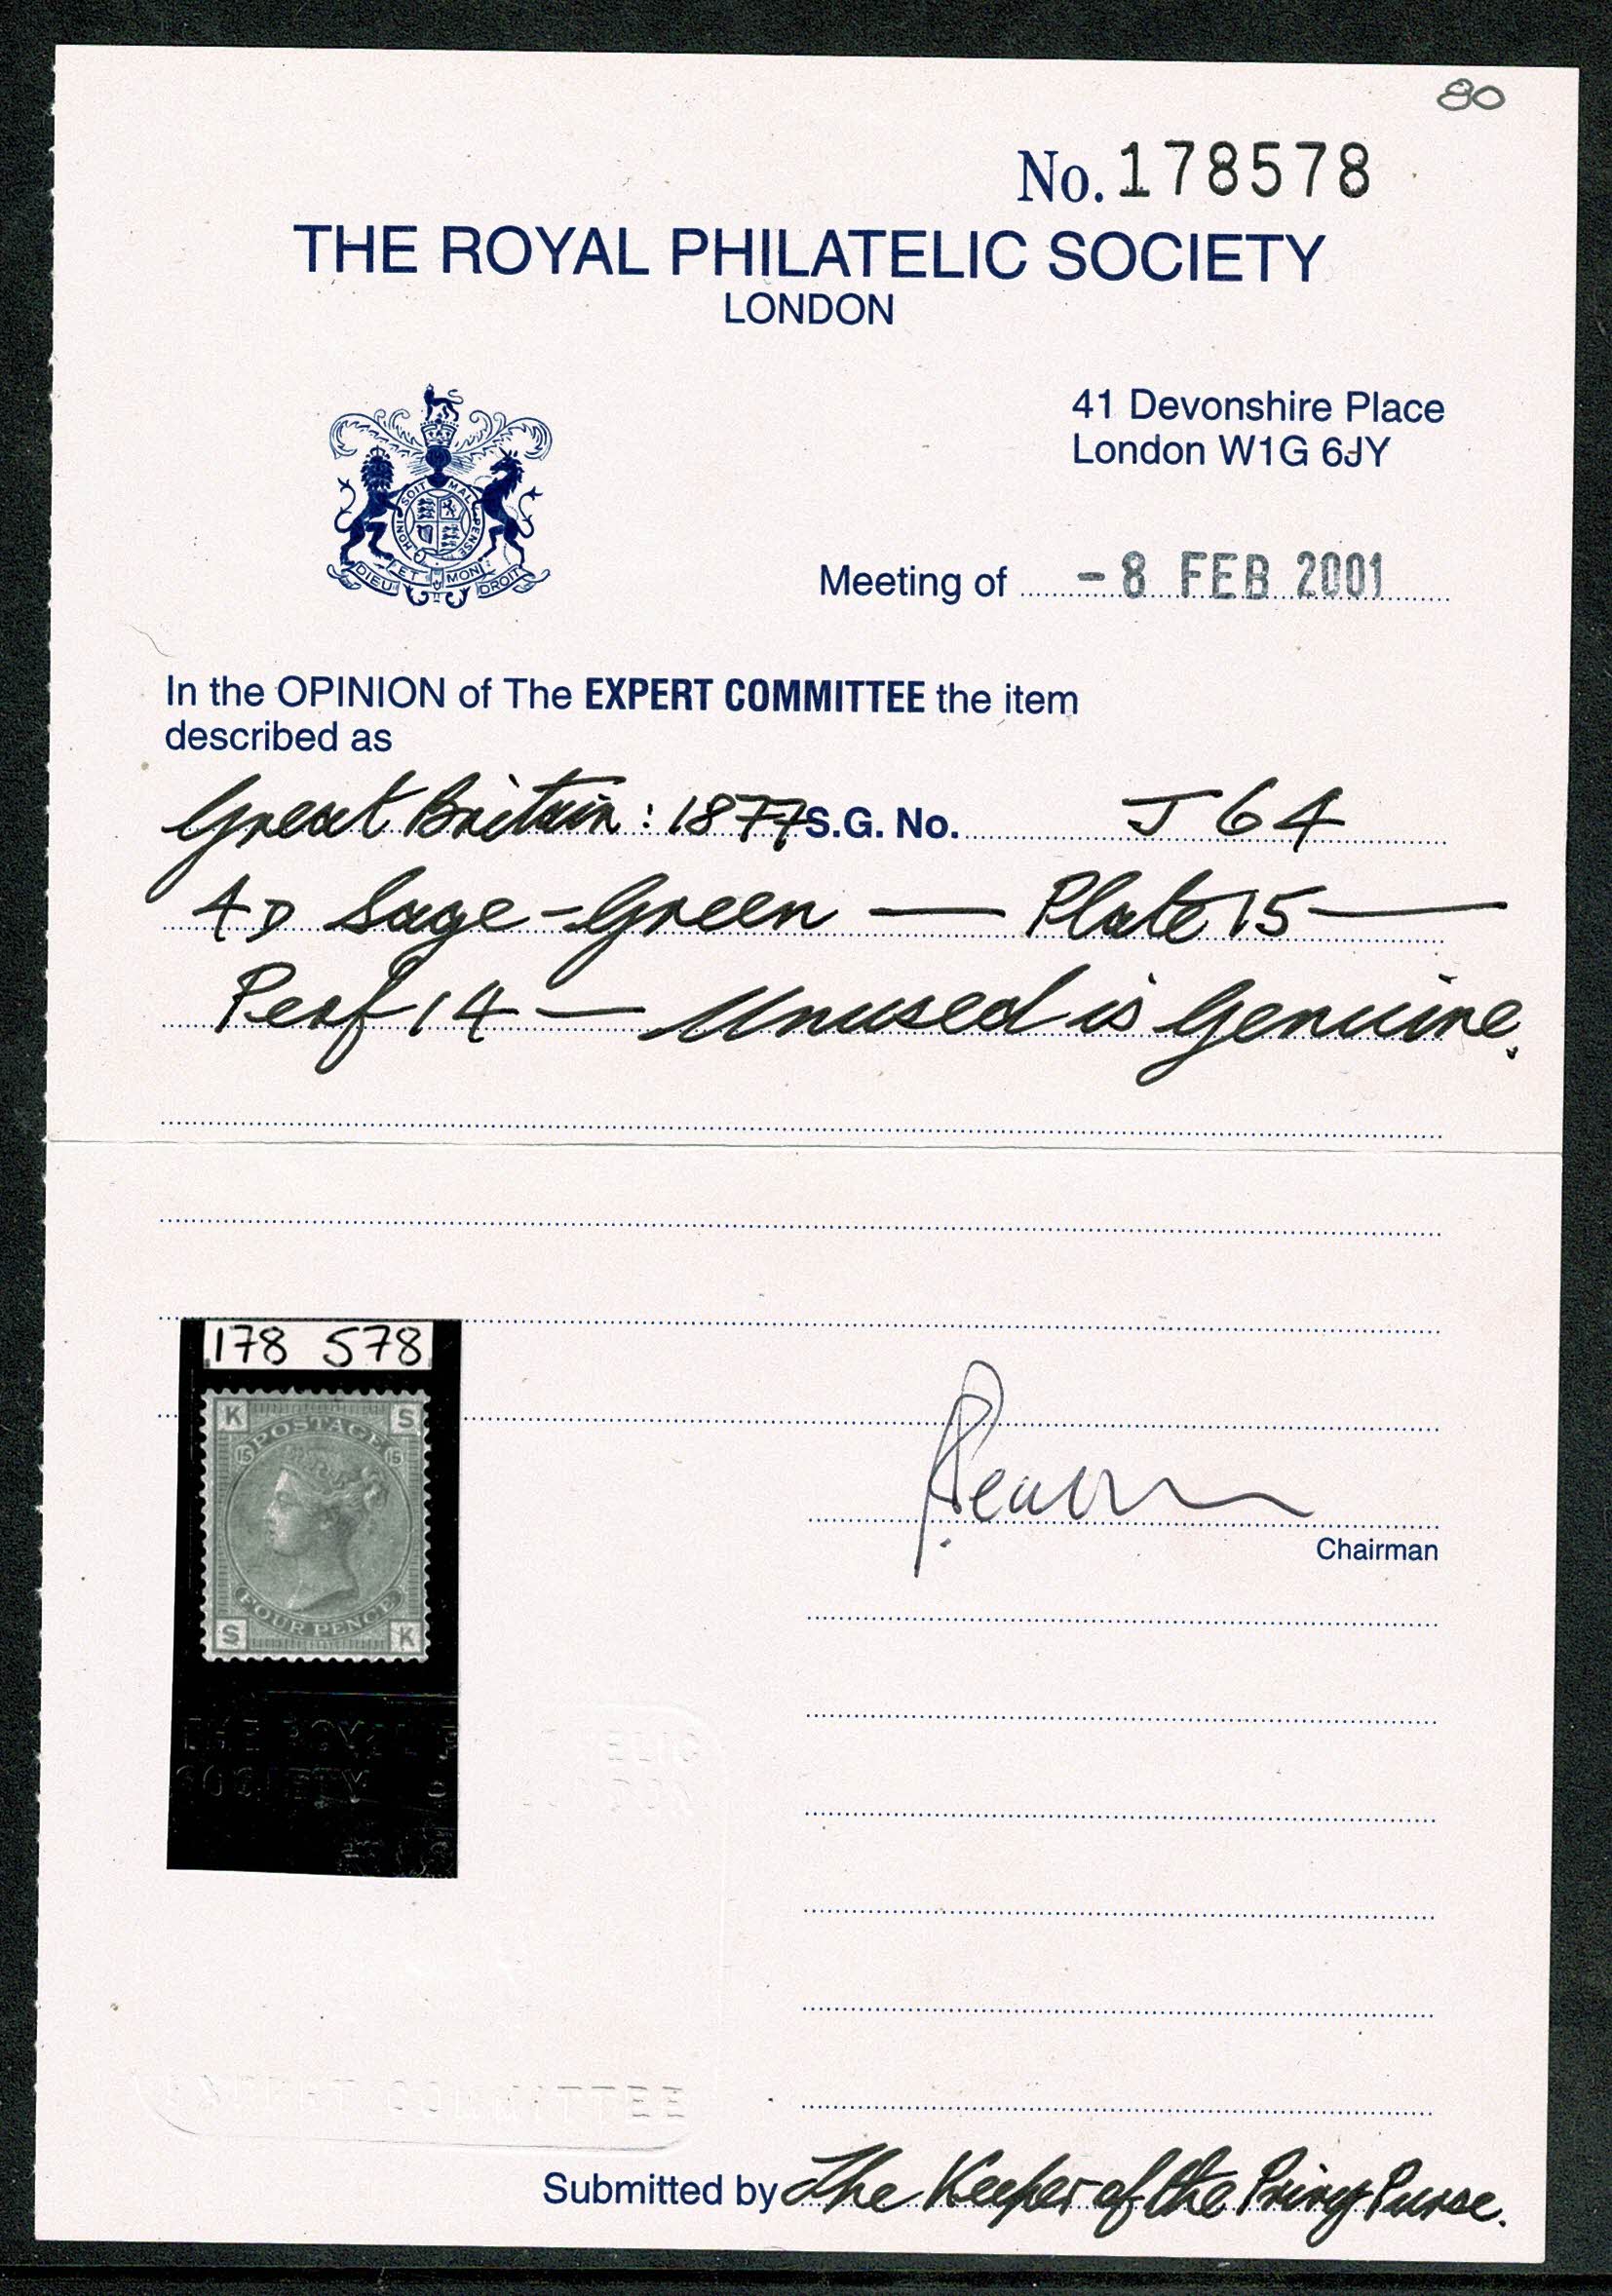 80
No. 178578
THE ROYAL PHILATELIC SOCIETY
LONDON
41 Devonshire Place
London W1G 6JY
HONI SOIT MAL PENSE
DIEU ET MON DROIT
Meeting of - 8 FEB 2001
In the OPINION of The EXPERT COMMITTEE the item
described as
Great Britain: 1877 S.G. No. J64
4D Sage-Green — Plate 15 —
Perf 14 — Unused is Genuine.
178 578
K S
POSTAGE
15 15
FOUR PENCE
S K
Chairman
THE ROYAL P
SOCIETY
EXPERT COMMITTEE
Submitted by The Keeper of the Privy Purse.